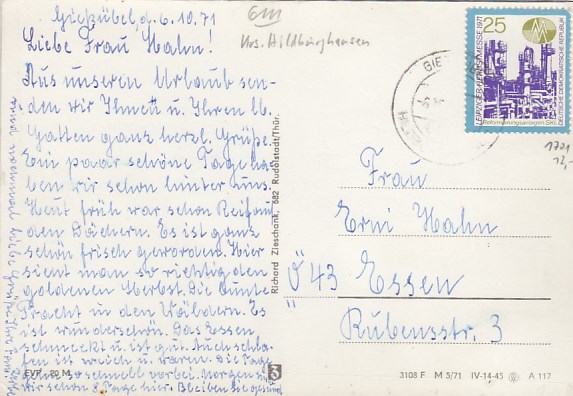 Gießübel, d. 6.10.71
Liebe Frau Hahn!
Aus unseren Urlaub sen-
den wir Ihnen u. Ihren lb.
Gatten ganz herzl. Grüße.
Ein paar schöne Tage ha-
ben wir schon hinter uns.
Heut früh war schon Reif an
den Dächern. Es ist ganz
schön frisch geworden. Hier
sieht man so richtig den
goldenen Herbst. Die bunte
Pracht in den Wäldern. Es
ist wunderschön. Das Essen
schmeckt u. ist gut. Auch schla-
fen ist weich u. waren. Die Tage
so schnell vorbei. Morgen
wir schon 8 Tage hier. Bleiben Sie gesund
EVP
Krs. Hildburghausen
Richard Zieschank, 682 Rudolstadt/Thür.
25
LEIPZIGER HERBSTMESSE 1971
DEUTSCHE DEMOKRATISCHE REPUBLIK
Reformierungsanlagen SKL
1701
12,-
Frau
Erni Hahn
Ö 43 Essen
Rubensstr. 3
3108 F M 5/71 IV-14-45 A 117